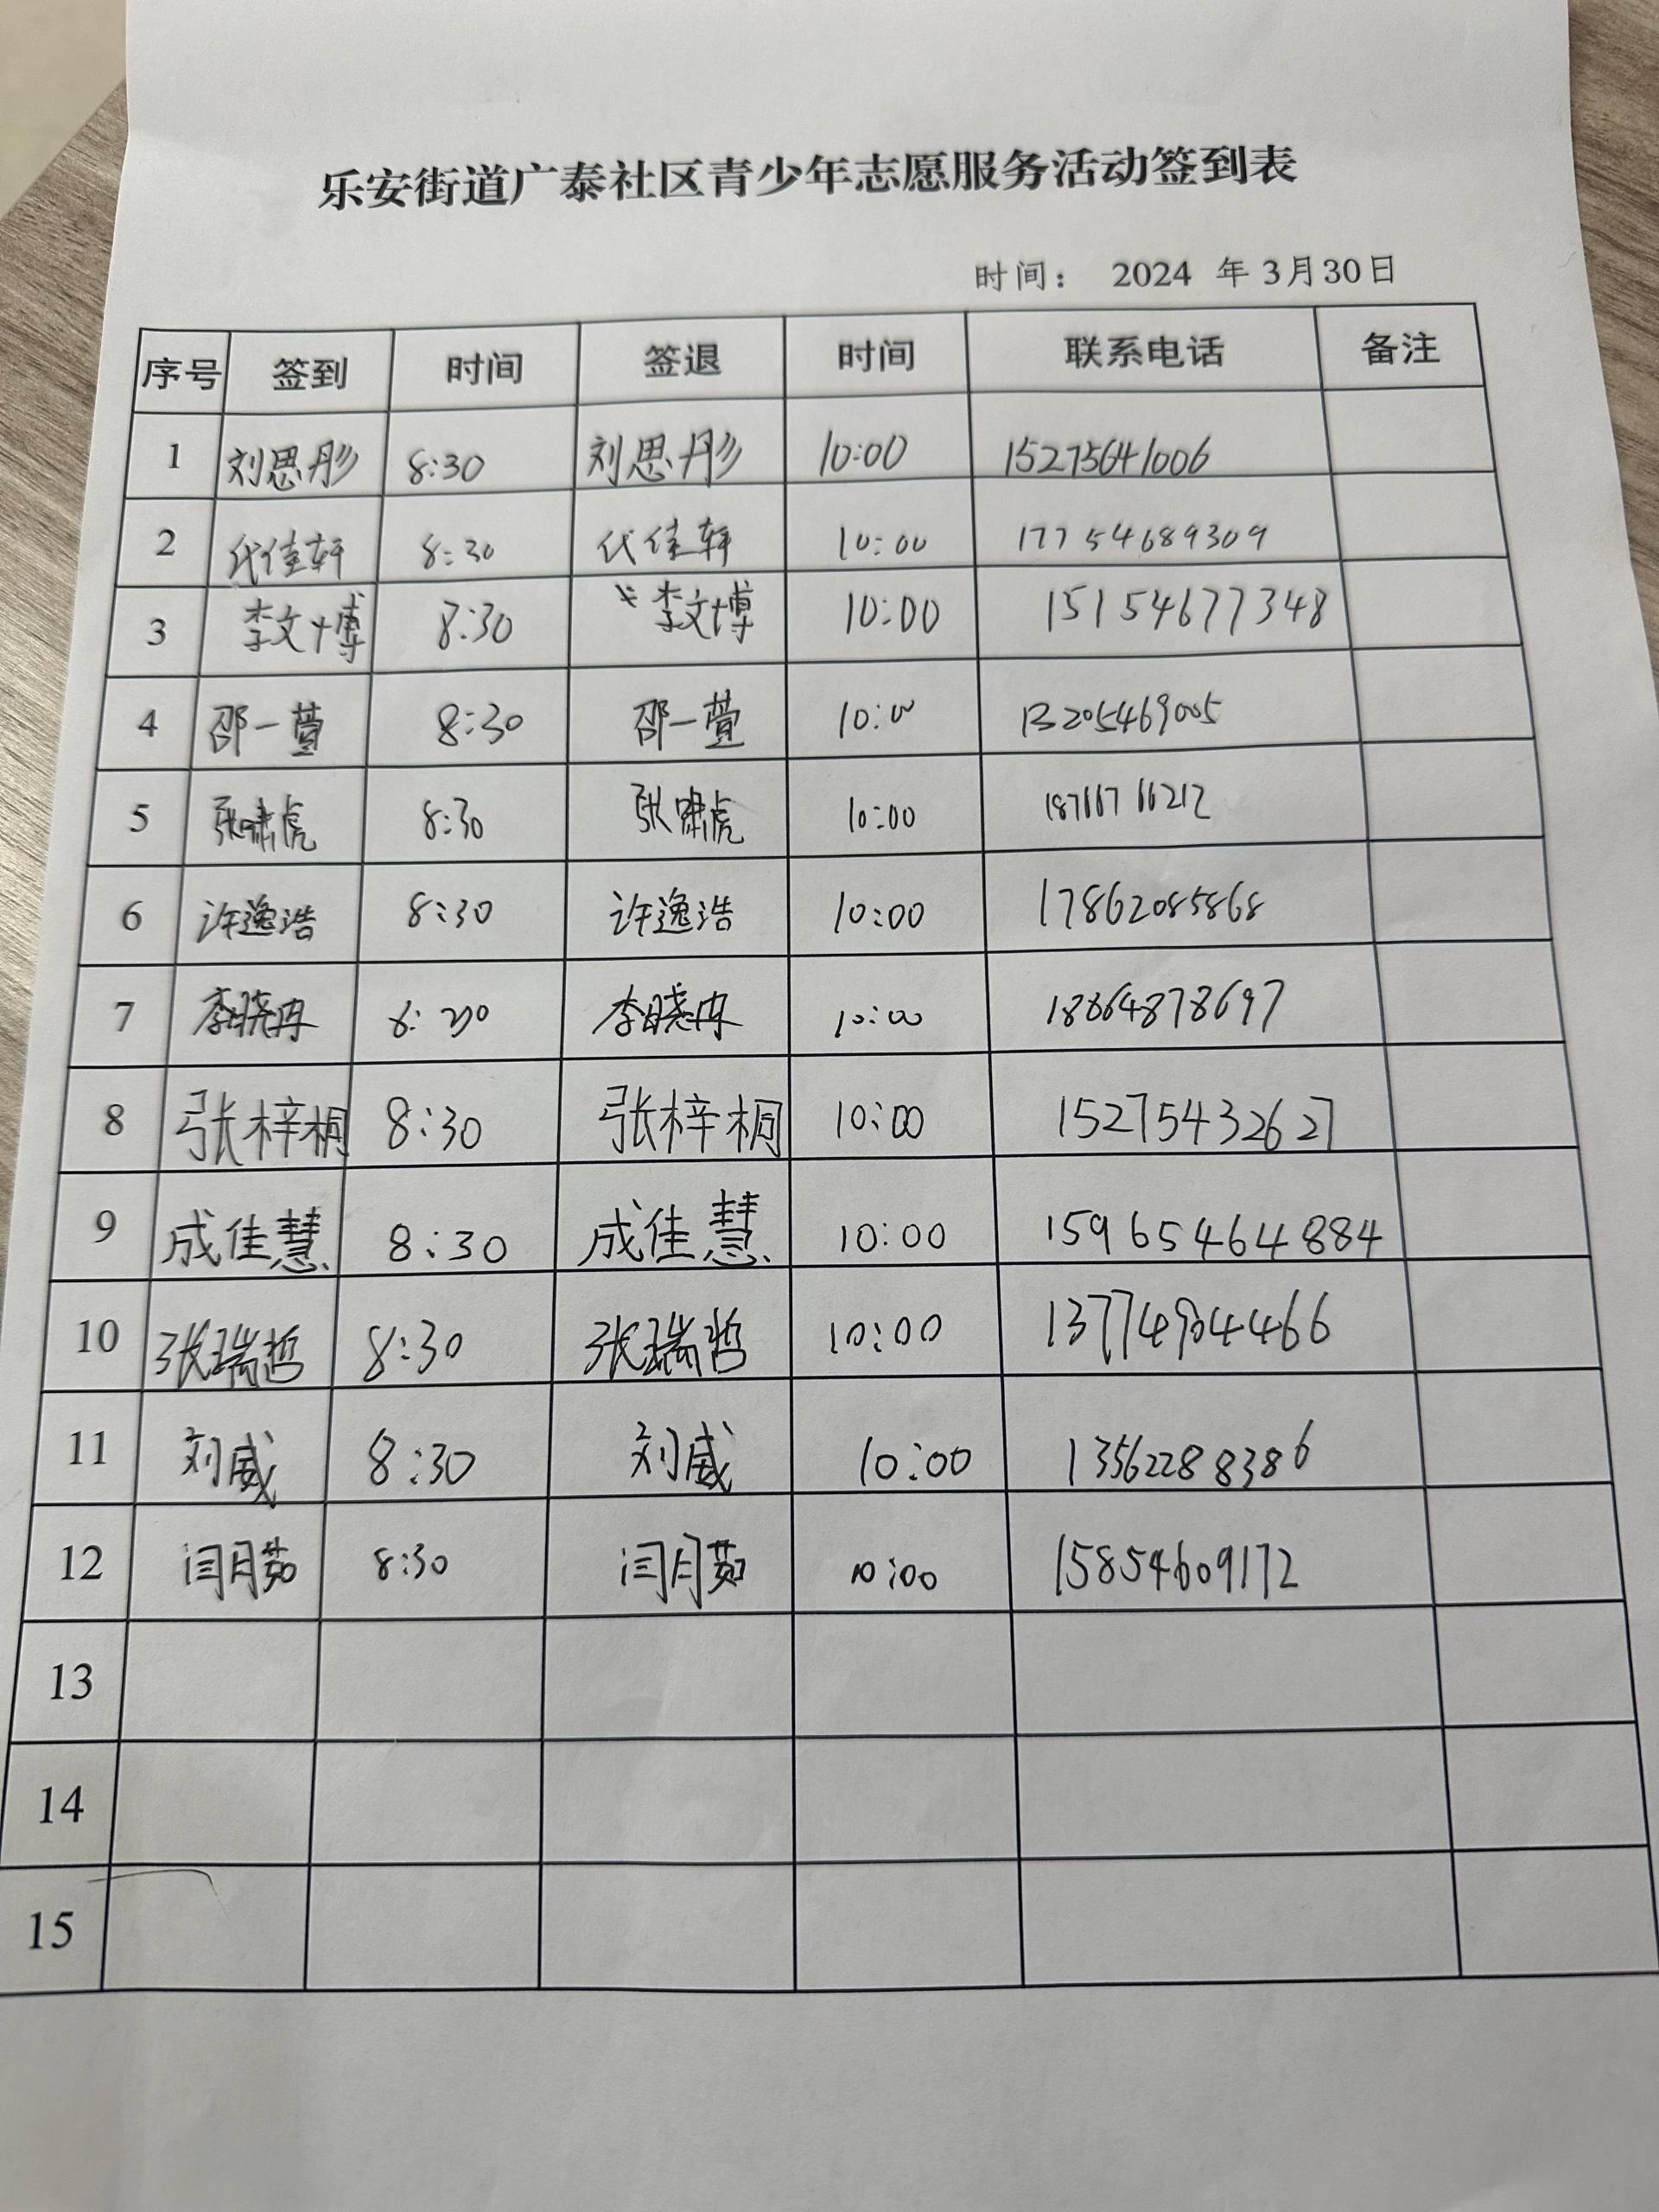 乐安街道广泰社区青少年志愿服务活动签到表
时间： 2024 年 3月30日
序号 签到 时间 签退 时间 联系电话 备注
1 刘思彤 8:30 刘思彤 10:00 15275641006
2 代佳轩 8:30 代佳轩 10:00 17754689309
3 李文博 8:30 李文博 10:00 15154677348
4 邵一萱 8:30 邵一萱 10:00 13205469005
5 张啸虎 8:30 张啸虎 10:00 18716716212
6 许逸浩 8:30 许逸浩 10:00 17862085868
7 李晓冉 8:30 李晓冉 10:00 18864878697
8 张梓桐 8:30 张梓桐 10:00 15275432627
9 成佳慧 8:30 成佳慧 10:00 15965464884
10 张瑞哲 8:30 张瑞哲 10:00
11 刘威 8:30 刘威 10:00 13562288386
12 闫月茹 8:30 闫月茹 10:00 15854609172
13
14
15